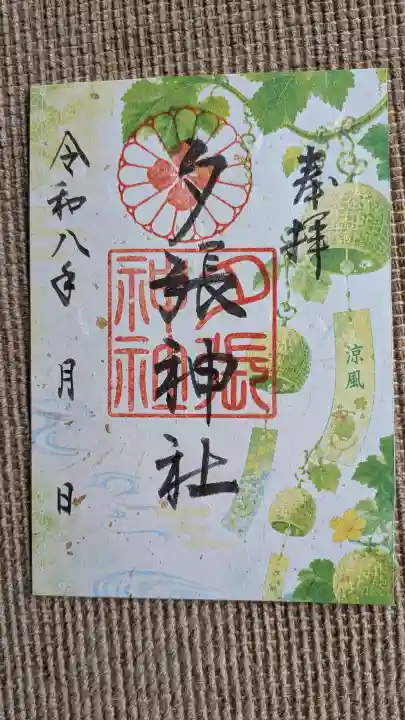 奉拝
涼風
夕張神社
夕張
神社
令和八年 月 日